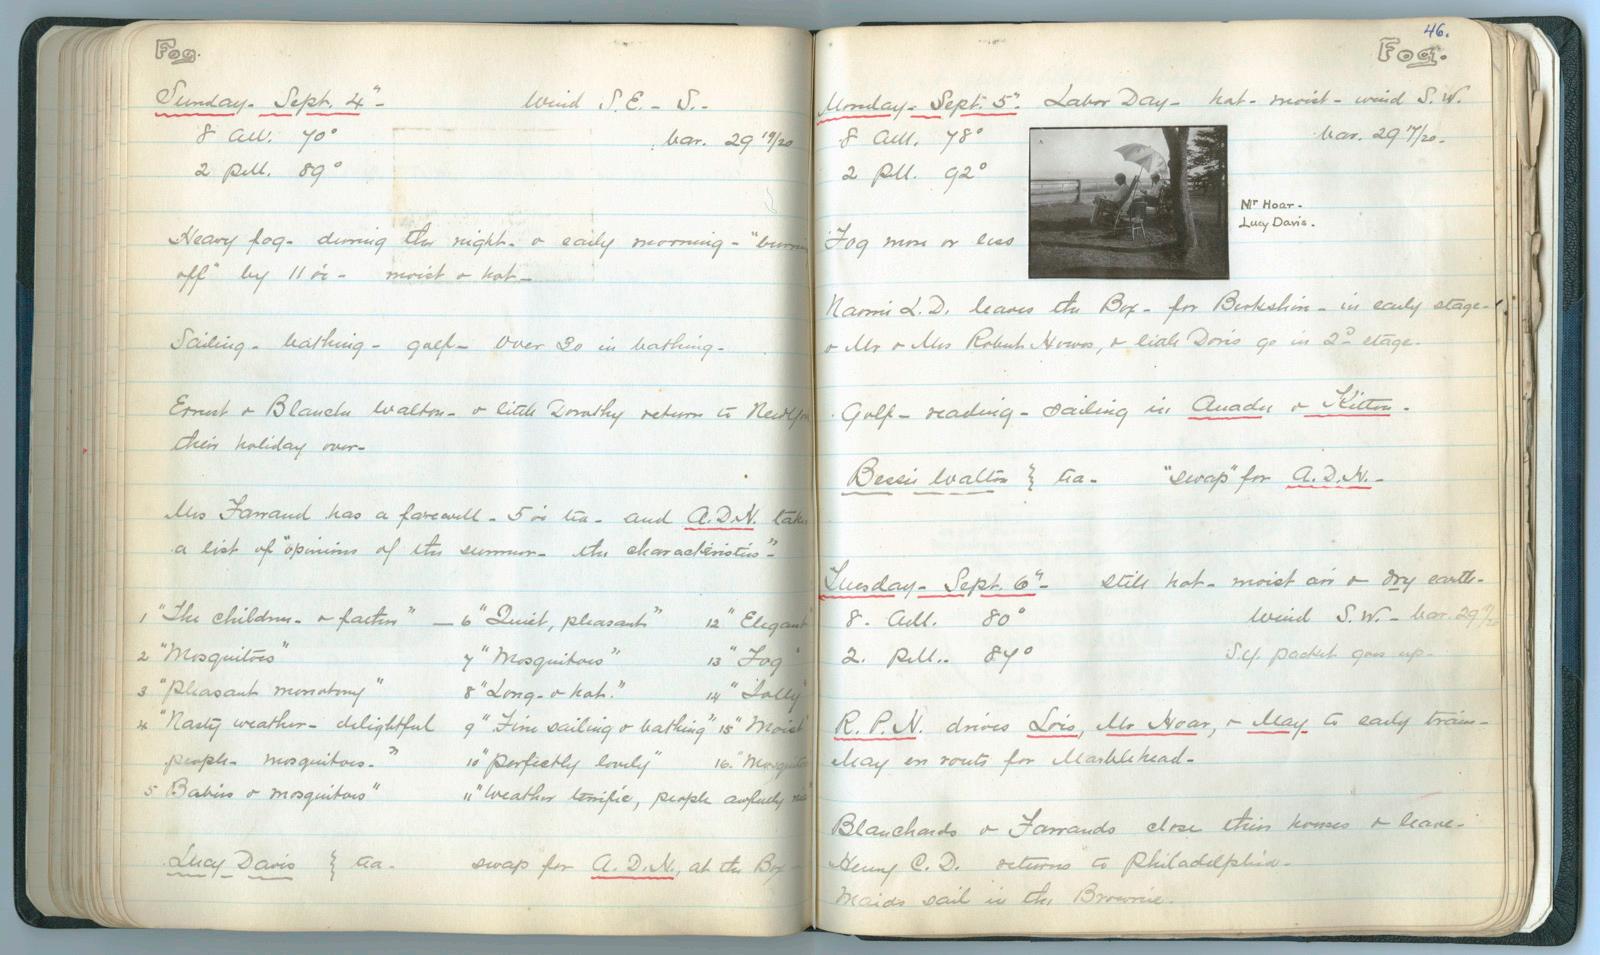 Fog.
Sunday - Sept. 4" - Wind S.E. - S. -
8 A.M. 70° bar. 29 19/20
2 P.M. 89°
Heavy fog - during the night - & early morning - "burns
off" by 11 o'c - moist & hot -
Sailing - bathing - golf - Over 30 in bathing -
Ernest & Blanche Walton - & little Dorothy return to New York
their holiday over -
Mrs Farrand has a farewell - 5 o'c tea - and A.D.N. takes
a list of "opinions of the summer - the characteristics" -
1 "The children - & factors" — 6 "Quiet, pleasant" 12 "Elegant"
2 "Mosquitoes" 7 "Mosquitoes" 13 "Fog"
3 "Pleasant monotony" 8 "Long - & hot." 14 "Jolly"
4 "Nasty weather - delightful 9 "Fine sailing & bathing" 15 "Moist"
people - mosquitoes -" 10 "Perfectly lovely" 16. "Mosquitoes
5 Babies & mosquitoes" 11 "Weather terrific, people awfully nice"
Lucy Davis } tea - swap for A.D.N., at the Box -
46.
Fog.
Monday - Sept. 5". Labor Day - hot - moist - wind S.W.
8 A.M. 78° bar. 29 7/20 -
2 P.M. 92°
Mr Hoar -
Lucy Davis -
Fog more or less
Naomi L.D. leaves the Box - for Berkshire - in early stage -
& Mr & Mrs Robert Howes, & little Doris go in 2d stage -
Golf - reading - sailing in & Kitten -
Bessie Walton } tea - "swap" for A.D.N. -
Tuesday - Sept. 6" - still hot - moist air & dry earth -
8. A.M. 80° Wind S.W. - bar. 29
2. P.M.. 84° packet goes up -
R.P.N. drives Lois, Mr Hoar, & May to early train -
May en route for Marblehead -
Blanchards & Farrands close their houses & leave -
Henry C.D. returns to Philadelphia -
Maids sail in the Brownie.